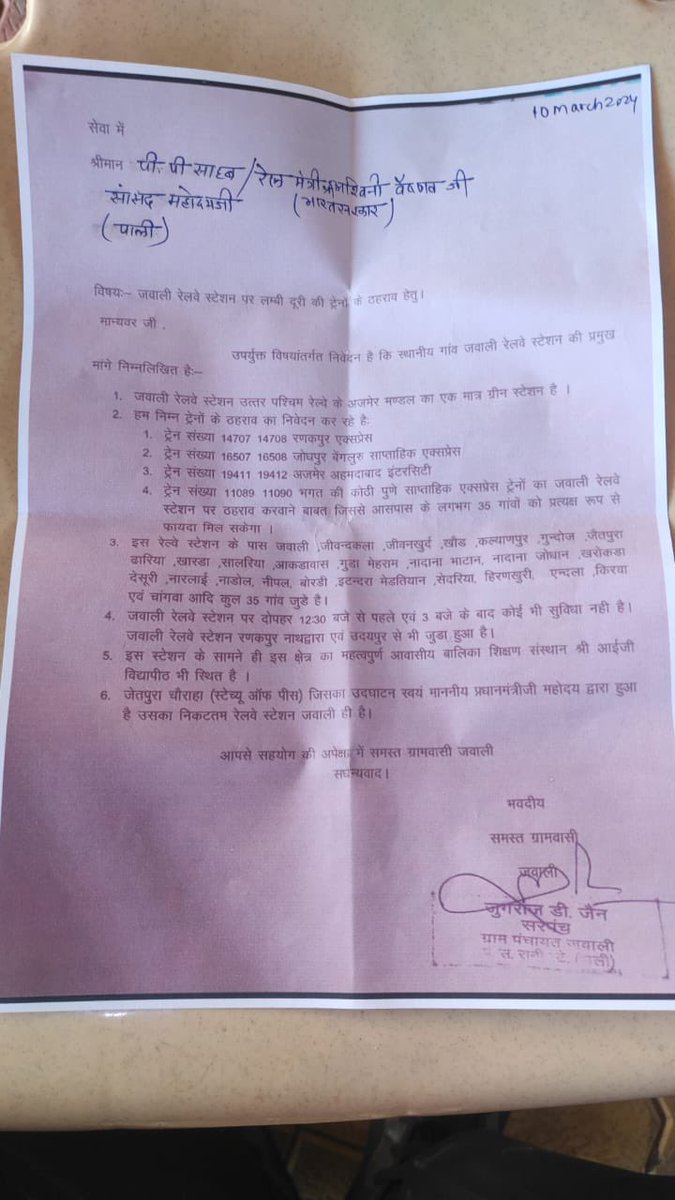 10 March 2024
सेवा में
श्रीमान पी. पी साहब / रेल मंत्री श्री अश्विनी वैष्णव जी
सांसद महोदयजी (भारत सरकार)
(पाली)
विषयः– जवाली रेलवे स्टेशन पर लम्बी दूरी की ट्रेनों के ठहराव हेतु।
मान्यवर जी ,
उपर्युक्त विषयांतर्गत निवेदन है कि स्थानीय गांव जवाली रेलवे स्टेशन की प्रमुख
मांगे निम्नलिखित हैः–
1. जवाली रेलवे स्टेशन उत्तर पश्चिम रेल्वे के अजमेर मण्डल का एक मात्र ग्रीन स्टेशन है ।
2. हम निम्न ट्रेनों के ठहराव का निवेदन कर रहे हैः
1. ट्रेन संख्या 14707 14708 रणकपुर एक्सप्रेस
2. ट्रेन संख्या 16507 16508 जोधपुर बेंगलुरु साप्ताहिक एक्सप्रेस
3. ट्रेन संख्या 19411 19412 अजमेर अहमदाबाद इंटरसिटी
4. ट्रेन संख्या 11089 11090 भगत की कोठी पुणे साप्ताहिक एक्सप्रेस ट्रेनों का जवाली रेलवे
स्टेशन पर ठहराव करवाने बाबत् जिससे आसपास के लगभग 35 गांवों को प्रत्यक्ष रूप से
फायदा मिल सकेगा ।
3. इस रेल्वे स्टेशन के पास जवाली ,जीवन्दकला ,जीवनखुर्द ,खौड ,कल्याणपुर ,गुन्दोज ,जैतपुरा
ढारिया ,खारडा ,सालरिया ,आकडावास ,गुडा मेहराम ,नादाना भाटान, नादाना जोधान ,खरोकडा
देसूरी ,नारलाई ,नाडोल, नीपल, बोरडी ,इटन्दरा मेडतियान ,सेदरिया, हिरणखुरी, एन्दला ,किरवा
एवं चांगवा आदि कुल 35 गांव जुडे है।
4. जवाली रेलवे स्टेशन पर दोपहर 12:30 बजे से पहले एवं 3 बजे के बाद कोई भी सुविधा नही है।
जवाली रेलवे स्टेशन रणकपुर नाथद्वारा एवं उदयपुर से भी जुडा हुआ है।
5. इस स्टेशन के सामने ही इस क्षेत्र का महत्वपुर्ण आवासीय बालिका शिक्षण संस्थान श्री आईजी
विद्यापीठ भी स्थित है ।
6. जेतपुरा चौराहा (स्टेच्यू ऑफ पीस) जिसका उदघाटन स्वयं माननीय प्रधानमंत्रीजी महोदय द्वारा हुआ
है उसका निकटतम रेलवे स्टेशन जवाली ही है।
आपसे सहयोग की अपेक्षा में समस्त ग्रामवासी जवाली
सधन्यवाद।
भवदीय
समस्त ग्रामवासी
जवाली
जुगराज डी. जैन
सरपंच
ग्राम पंचायत जवाली